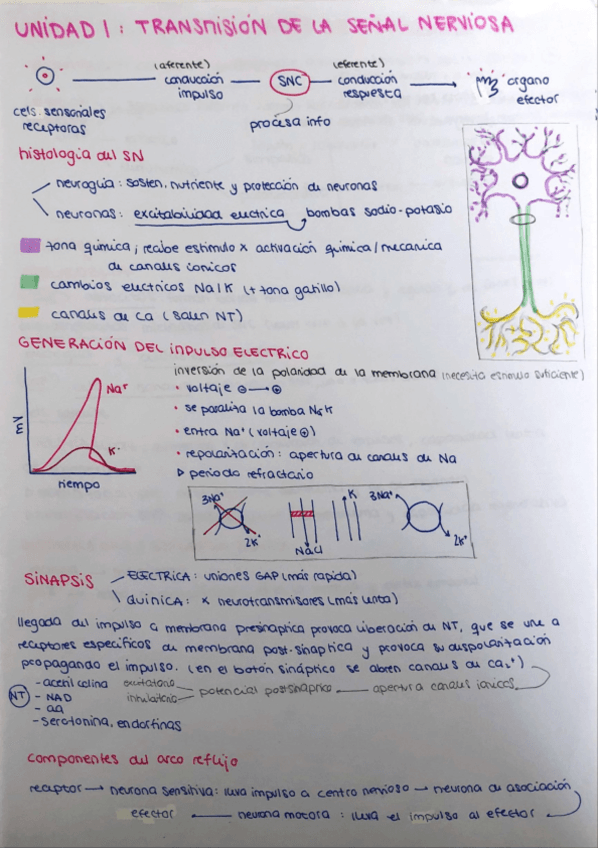 UNIDAD 1: TRANSMISIÓN DE LA SEÑAL NERVIOSA
(aferente)
(eferente)
conducción impulso
SNC
conducción respuesta
organo efector
cels. sensoriales receptoras
procesa info
histologia del SN
neuroglia: sosten, nutriente y protección de neuronas
neuronas: excitabilidad electrica bombas sodio-potasio
zona química, recibe estimulo x activación química/mecanica
de canales ionicos
cambios electricos Na/K (+ zona gatillo)
canales de Ca (salen NT)
GENERACIÓN DEL IMPULSO ELECTRICO
inversión de la polaridad de la membrana (necesita estimulo suficiente)
• voltaje ⊖ → ⊕
• se paraliza la bomba Na K
• entra Na⁺ (voltaje ⊕)
• repolarización: apertura de canales de Na
▷ periodo refractario
mV
Na⁺
K⁺
Tiempo
3Na⁺
2K⁺
NaCl
K
3Na⁺
2K⁺
SINAPSIS
ELECTRICA: uniones GAP (más rapida)
QUIMICA: x neurotransmisores (más lenta)
llegada del impulso a membrana presinaptica provoca liberación de NT, que se une a
receptores especificos de membrana post-sinaptica y provoca su despolarización
propagando el impulso. (en el botón sináptico se abren canales de Ca⁺²)
NT
- acetil colina
- NAD
- aa
- Serotonina, endorfinas
excitatorio
inhibitorio
potencial postsináptico
apertura canales ionicos
componentes del arco reflejo
receptor → neurona sensitiva: lleva impulso a centro nervioso → neurona de asociación
efector ← neurona motora: lleva el impulso al efector